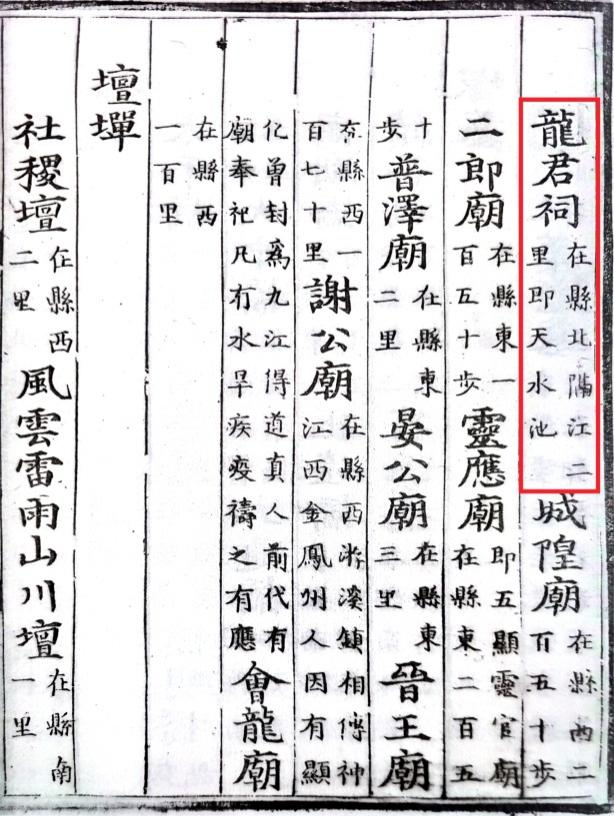 龍君祠在縣北隔江二里即天水池城隍廟在縣西二百五十步
二郎廟在縣東一百五十步靈應廟即五顯靈官廟在縣東二百五
十步普澤廟在縣東二里晏公廟在縣東三里晉王廟
在縣西一百七十里謝公廟在縣西游溪鎮相傳神江西金鳳州人因有顯
化曾封爲九江得道真人前代有廟奉祀凡有水旱疾疫禱之有應會龍廟
在縣西一百里
壇墠
社稷壇在縣西二里風雲雷雨山川壇在縣南一里